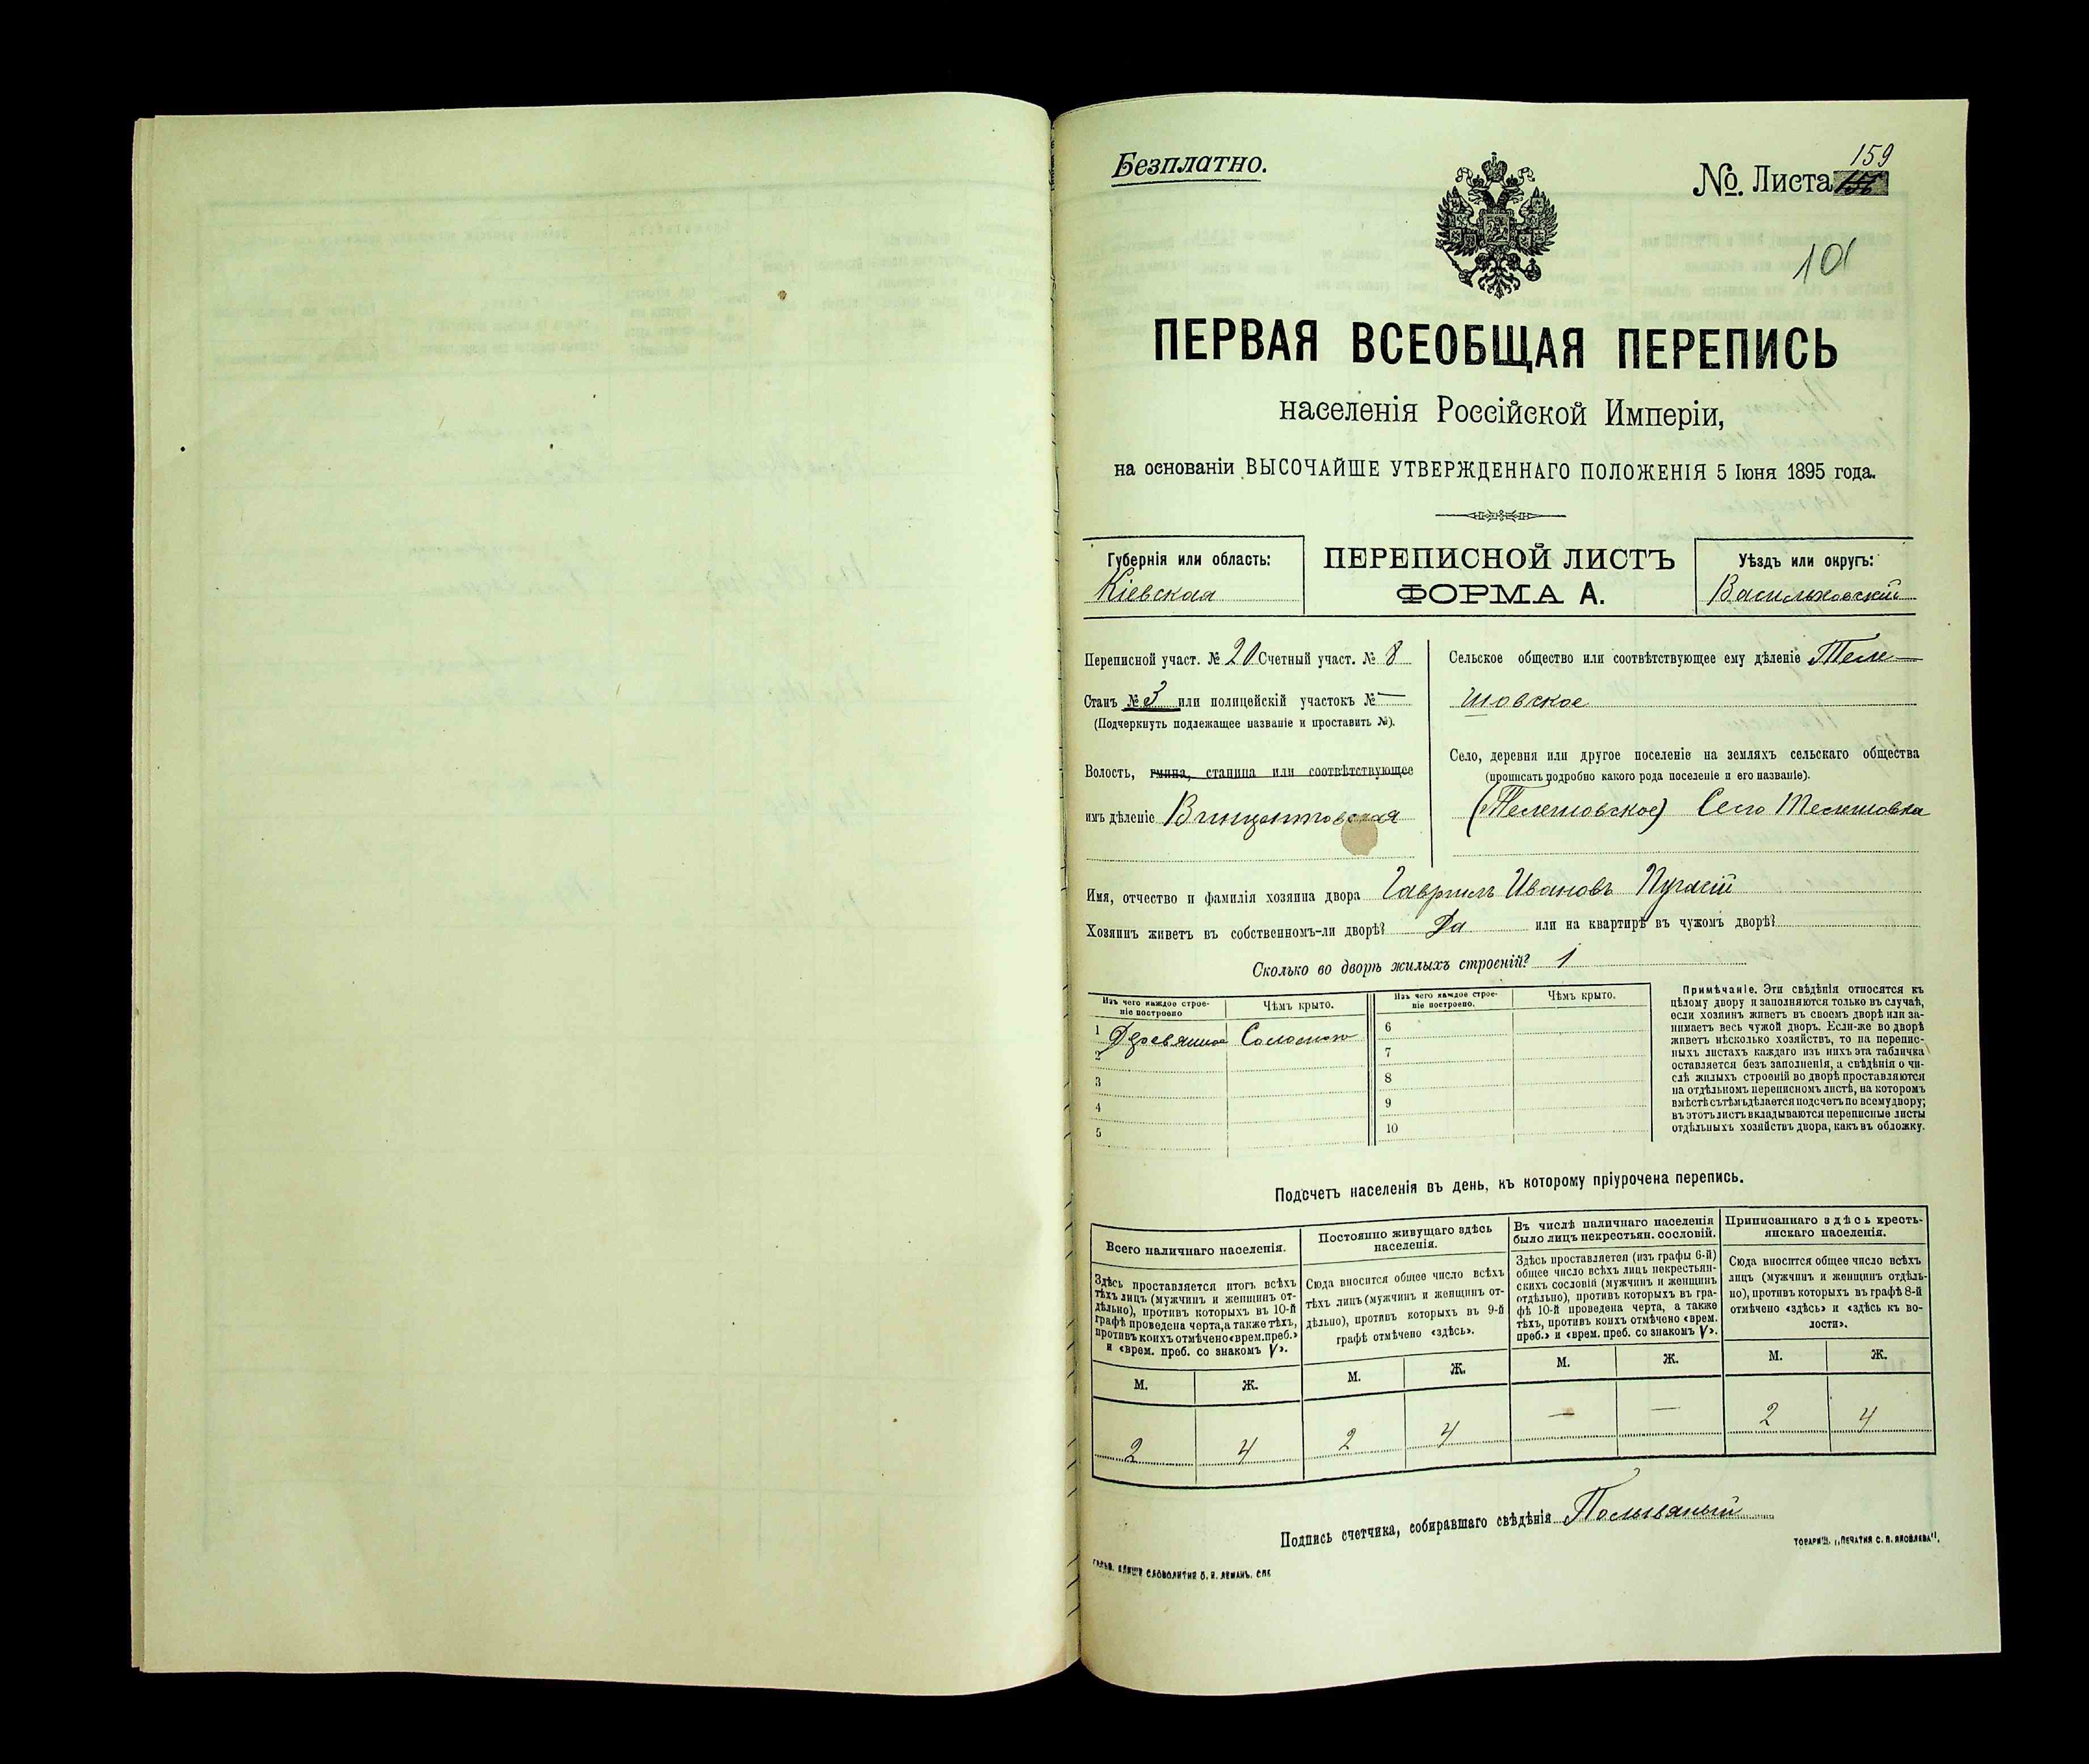 Безплатно.
159
№. Листа 156
101
ПЕРВАЯ ВСЕОБЩАЯ ПЕРЕПИСЬ
населенія Россійской Имперіи,
на основаніи ВЫСОЧАЙШЕ УТВЕРЖДЕННАГО ПОЛОЖЕНІЯ 5 Іюня 1895 года.
Губернія или область:
Кіевская
ПЕРЕПИСНОЙ ЛИСТЪ
ФОРМА А.
Уѣздъ или округъ:
Васильковскій
Переписной участ. № 20 Счетный участ. № 8
Станъ № 3 или полицейскій участокъ № —
(Подчеркнуть подлежащее названіе и проставить №).
Волость, гмина, станица или соотвѣтствующее
имъ дѣленіе Винцентовская
Сельское общество или соотвѣтствующее ему дѣленіе Теле-
шовское
Село, деревня или другое поселеніе на земляхъ сельскаго общества
(прописать подробно какого рода поселеніе и его названіе).
(Телешовское) Село Телешовка
Имя, отчество и фамилія хозяина двора Гавриилъ Ивановъ
Хозяинъ живетъ въ собственномъ-ли дворѣ? Да или на квартирѣ въ чужомъ дворѣ?
Сколько во дворѣ жилыхъ строеній? 1
Изъ чего каждое строе-
ніе построено
Чѣмъ крыто.
Изъ чего каждое строе-
ніе построено.
Чѣмъ крыто.
1 Деревянное Соломою
2
3
4
5
6
7
8
9
10
Примѣчаніе. Эти свѣдѣнія относятся къ
цѣлому двору и заполняются только въ случаѣ,
если хозяинъ живетъ въ своемъ дворѣ или за-
нимаетъ весь чужой дворъ. Если-же во дворѣ
живетъ нѣсколько хозяйствъ, то на перепис-
ныхъ листахъ каждаго изъ нихъ эта табличка
оставляется безъ заполненія, а свѣдѣнія о чи-
слѣ жилыхъ строеній во дворѣ проставляются
на отдѣльномъ переписномъ листѣ, на которомъ
вмѣстѣ съ тѣмъ дѣлается подсчетъ по всему двору;
въ этотъ листъ вкладываются переписные листы
отдѣльныхъ хозяйствъ двора, какъ въ обложку.
Подсчетъ населенія въ день, къ которому пріурочена перепись.
Всего наличнаго населенія.
Здѣсь проставляется итогъ всѣхъ
тѣхъ лицъ (мужчинъ и женщинъ от-
дѣльно), противъ которыхъ въ 10-й
графѣ проведена черта, а также тѣхъ,
противъ коихъ отмѣчено «врем. преб.»
и «врем. преб. со знакомъ V».
Постоянно живущаго здѣсь
населенія.
Сюда вносится общее число всѣхъ
тѣхъ лицъ (мужчинъ и женщинъ от-
дѣльно), противъ которыхъ въ 9-й
графѣ отмѣчено «здѣсь».
Въ числѣ наличнаго населенія
было лицъ некрестьян. сословій.
Здѣсь проставляется (изъ графы 6-й)
общее число всѣхъ лицъ некрестьян-
скихъ сословій (мужчинъ и женщинъ
отдѣльно), противъ которыхъ въ гра-
фѣ 10-й проведена черта, а также
тѣхъ, противъ коихъ отмѣчено «врем.
преб.» и «врем. преб. со знакомъ V».
Приписаннаго здѣсь кресть-
янскаго населенія.
Сюда вносится общее число всѣхъ
лицъ (мужчинъ и женщинъ отдѣль-
но), противъ которыхъ въ графѣ 8-й
отмѣчено «здѣсь» и «здѣсь къ во-
лости».
М. Ж. М. Ж. М. Ж. М. Ж.
2 4 2 4 — — 2 4
Подпись счетчика, собиравшаго свѣдѣнія
ТОВАРИЩ. „ПЕЧАТНЯ С. П. ЯКОВЛЕВА“.
СЛОВОЛИТНЯ О. И. ЛЕМАНЪ. СПБ